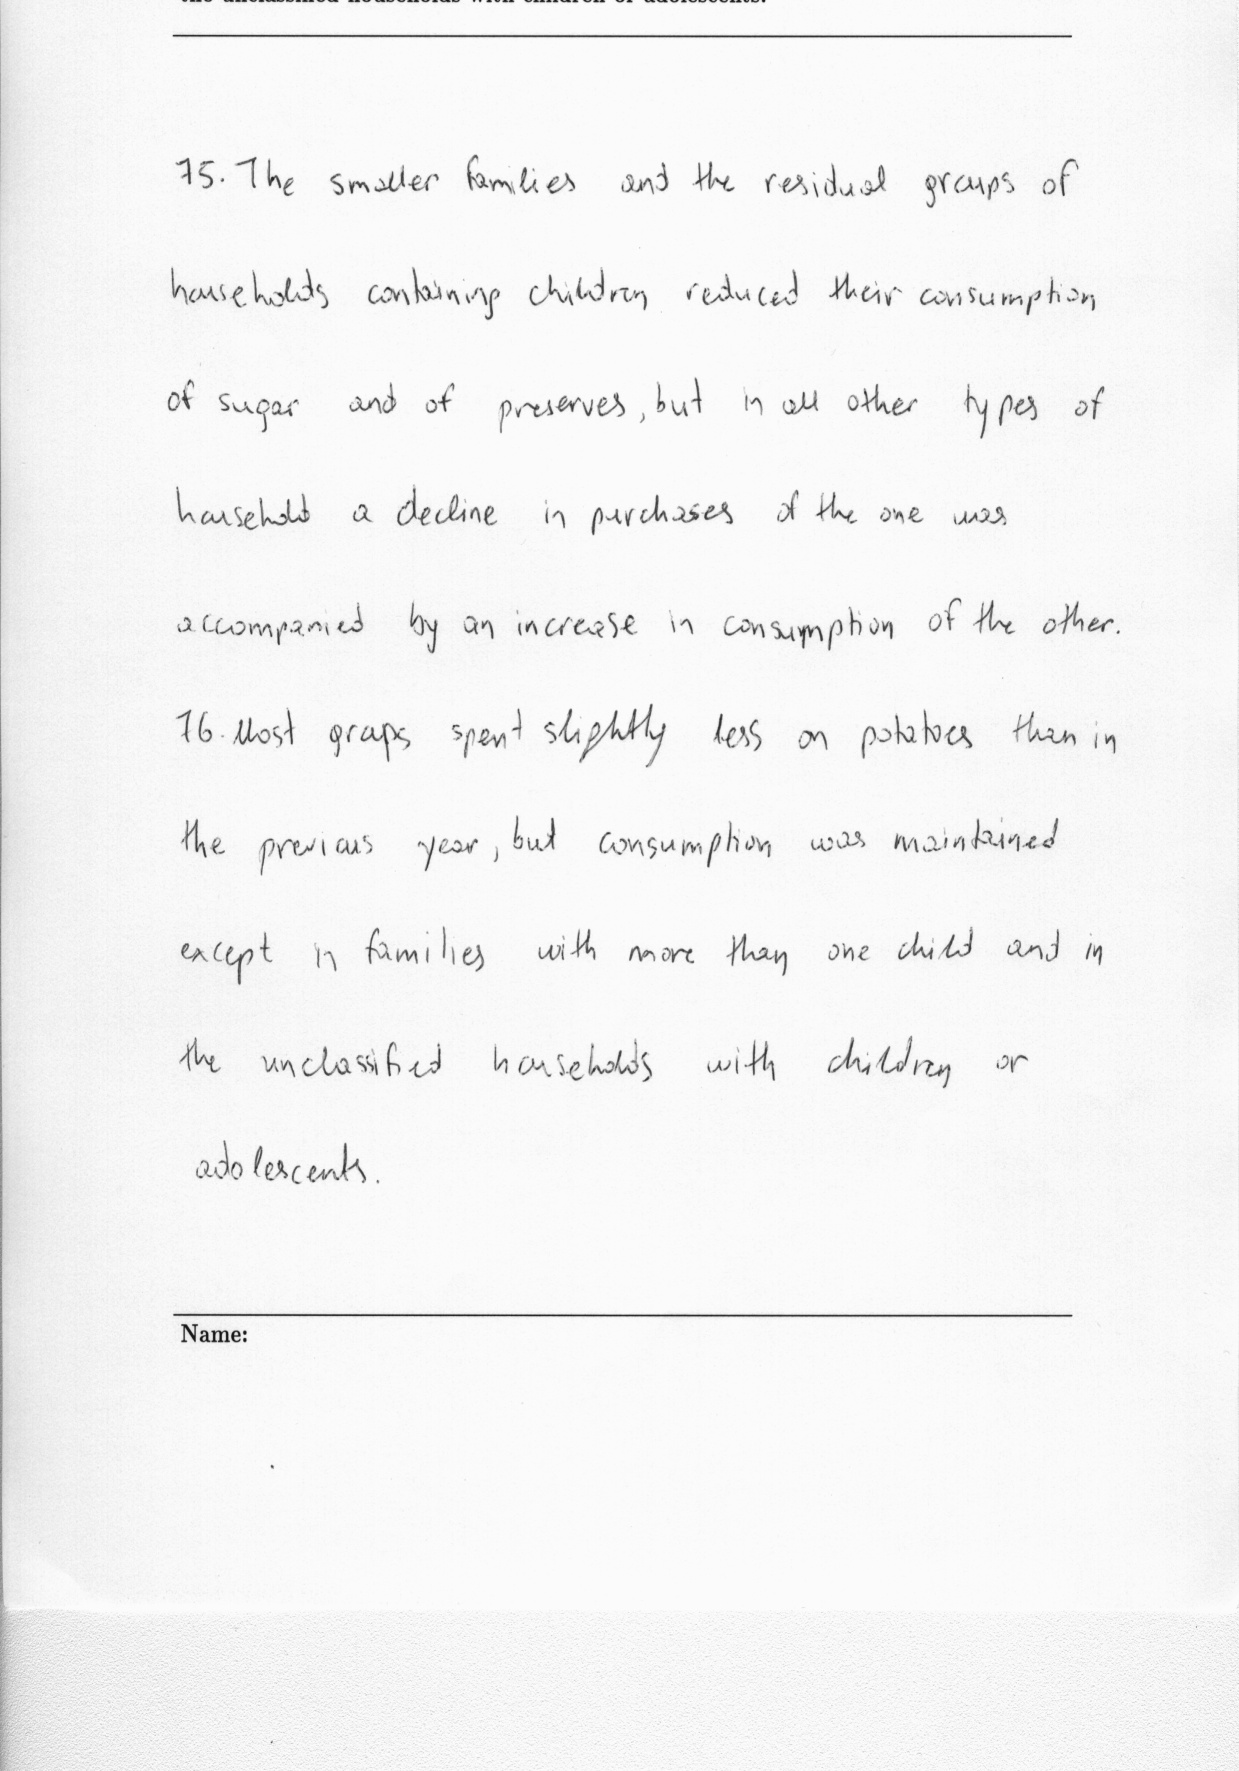 the unclassified households with children or adolescents.
75. The smaller families and the residual groups of
households containing children reduced their consumption
of sugar and of preserves, but in all other types of
household a decline in purchases of the one was
accompanied by an increase in consumption of the other.
76. Most groups spent slightly less on potatoes than in
the previous year, but consumption was maintained
except in families with more than one child and in
the unclassified households with children or
adolescents.
Name: